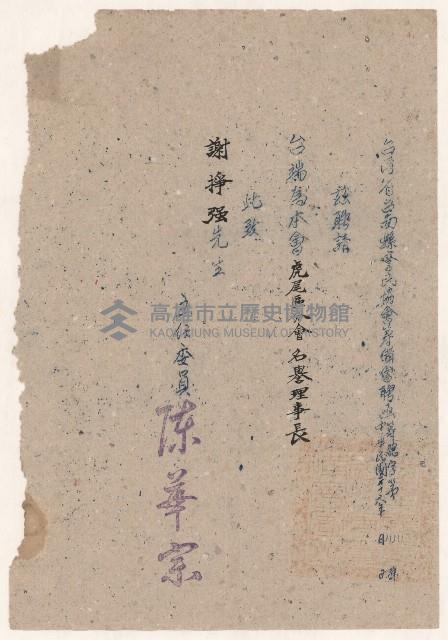 台灣省台南縣農民協會籌備會聘函
中華民國卅六年 月 日
茲聘請
台端為本會虎尾區會名譽理事長
此致
謝掙强先生
主任委員
陳華宗
高雄市立歷史博物館
KAOHSIUNG MUSEUM OF HISTORY